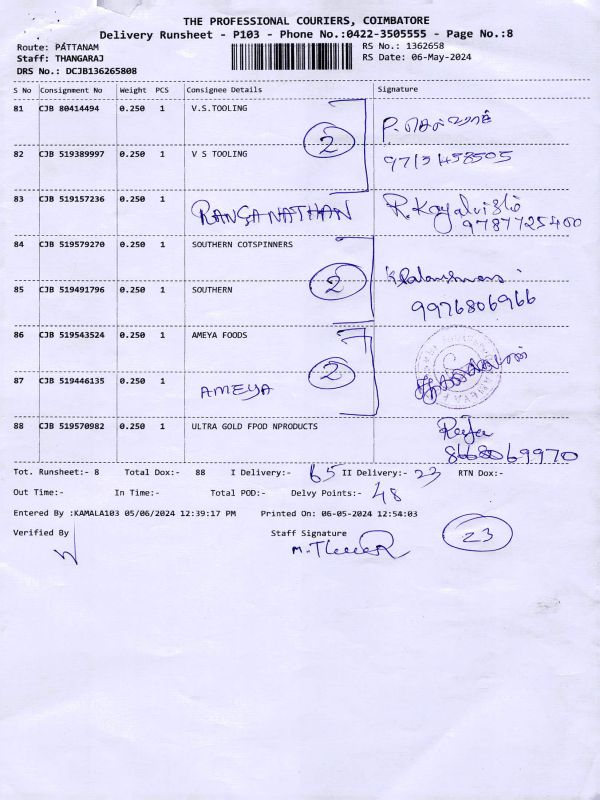 THE PROFESSIONAL COURIERS, COIMBATORE
Delivery Runsheet - P103 - Phone No.:0422-3505555 - Page No.:8
Route: PATTANAM RS No.: 1362658
Staff: THANGARAJ RS Date: 06-May-2024
DRS No.: DCJB136265808
S No Consignment No Weight PCS Consignee Details Signature
81 CJB 80414494 0.250 1 V.S.TOOLING
2
82 CJB 519389997 0.250 1 V S TOOLING
83 CJB 519157236 0.250 1 RANGANATHAN R. Kayalvizhi
9787725400
84 CJB 519579270 0.250 1 SOUTHERN COTSPINNERS
2
85 CJB 519491796 0.250 1 SOUTHERN 9976806966
86 CJB 519543524 0.250 1 AMEYA FOODS
2
87 CJB 519446135 0.250 1 AMEYA
88 CJB 519570982 0.250 1 ULTRA GOLD FPOD NPRODUCTS
8668069970
Tot. Runsheet:- 8 Total Dox:- 88 I Delivery:- 65 II Delivery:- 23 RTN Dox:-
Out Time:- In Time:- Total POD:- Delvy Points:- 48
Entered By :KAMALA103 05/06/2024 12:39:17 PM Printed On: 06-05-2024 12:54:03
Verified By Staff Signature
23